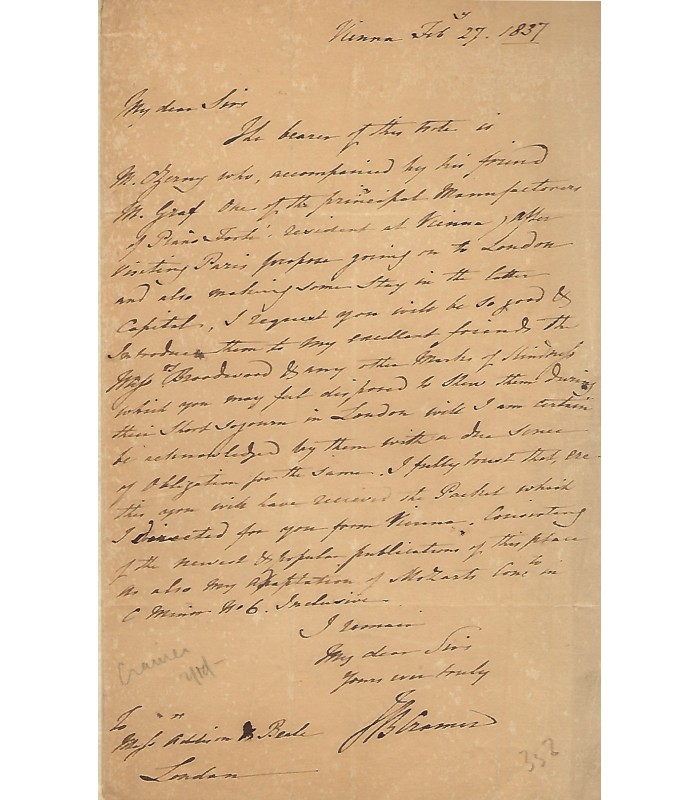 Vienna Feby 27. 1837
My dear Sirs
The bearer of this Note is
M. Czerny who, accompanied by his friend
M. Graf One of the principal Manufacturers
of Piano Forte's resident at Vienna, after
Visiting Paris propose going on to London
and also making some Stay in the latter
Capital, I request you will be so good &
Introduce them to my excellent friends the
Messrs Broadwood & any other Marks of Kindness
which you may feel disposed to Shew them during
their Short Sojourn in London will I am certain
be acknowledged by them with a due sense
of Obligation for the same. I fully trust that, ere
this you will have received the Packet which
I directed for you from Vienna. Consisting
of the newest & popular publications of this place
as also my adaptation of Mozarts Conto in
C Minor No 6. Inclusive
I remain
My dear Sirs
Yours ever truly
JB Cramer
Cramer
To
Messrs Addison & Beale
London
352